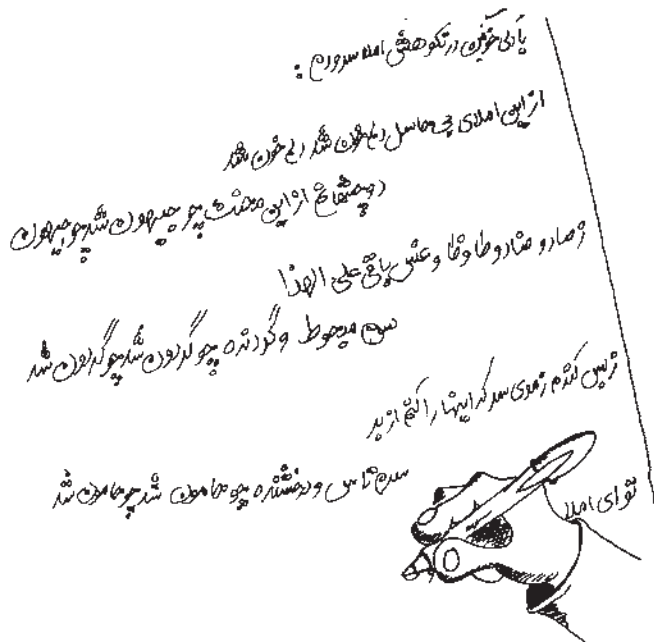 با دلی خونین در نکوهش املا سرودم :
از این املای بی حاصل دلم خون شد دلم خون شد
دو چشمانم از این محنت چو جیهون شد چو جیهون
ز صاد و ضاد و طا و ظا و عین باقی علی الهذا
سرم محوط و گردنده چو گردون شد چو گردون شد
ز بس کندم ز موی سر که اینها را کنم از بر
سرم تاس و درخشنده چو حامون شد چو حامون شد
تو ای املا